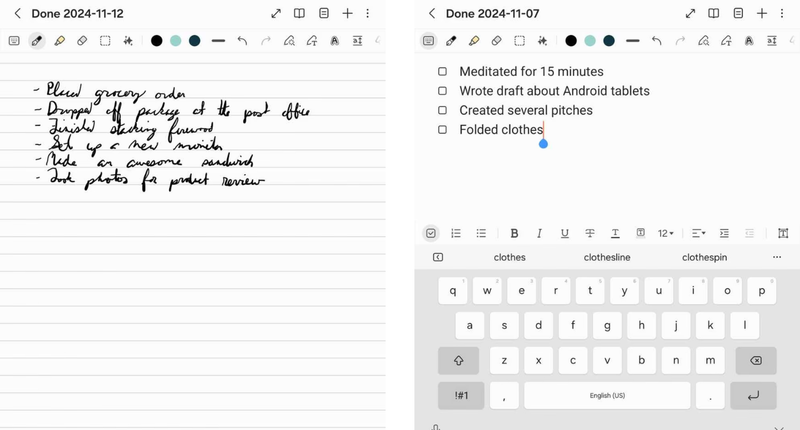 Done 2024-11-12
- Placed grocery order
- Dropped off package at the post office
- Finished stacking firewood
- Set up a new monitor
- Made an awesome sandwich
- Took photos for product review
Done 2024-11-07
Meditated for 15 minutes
Wrote draft about Android tablets
Created several pitches
Folded clothes
B I U T T 12
clothes clothesline clothespin
q w e r t y u i o p
a s d f g h j k l
z x c v b n m
!#1 , English (US) .